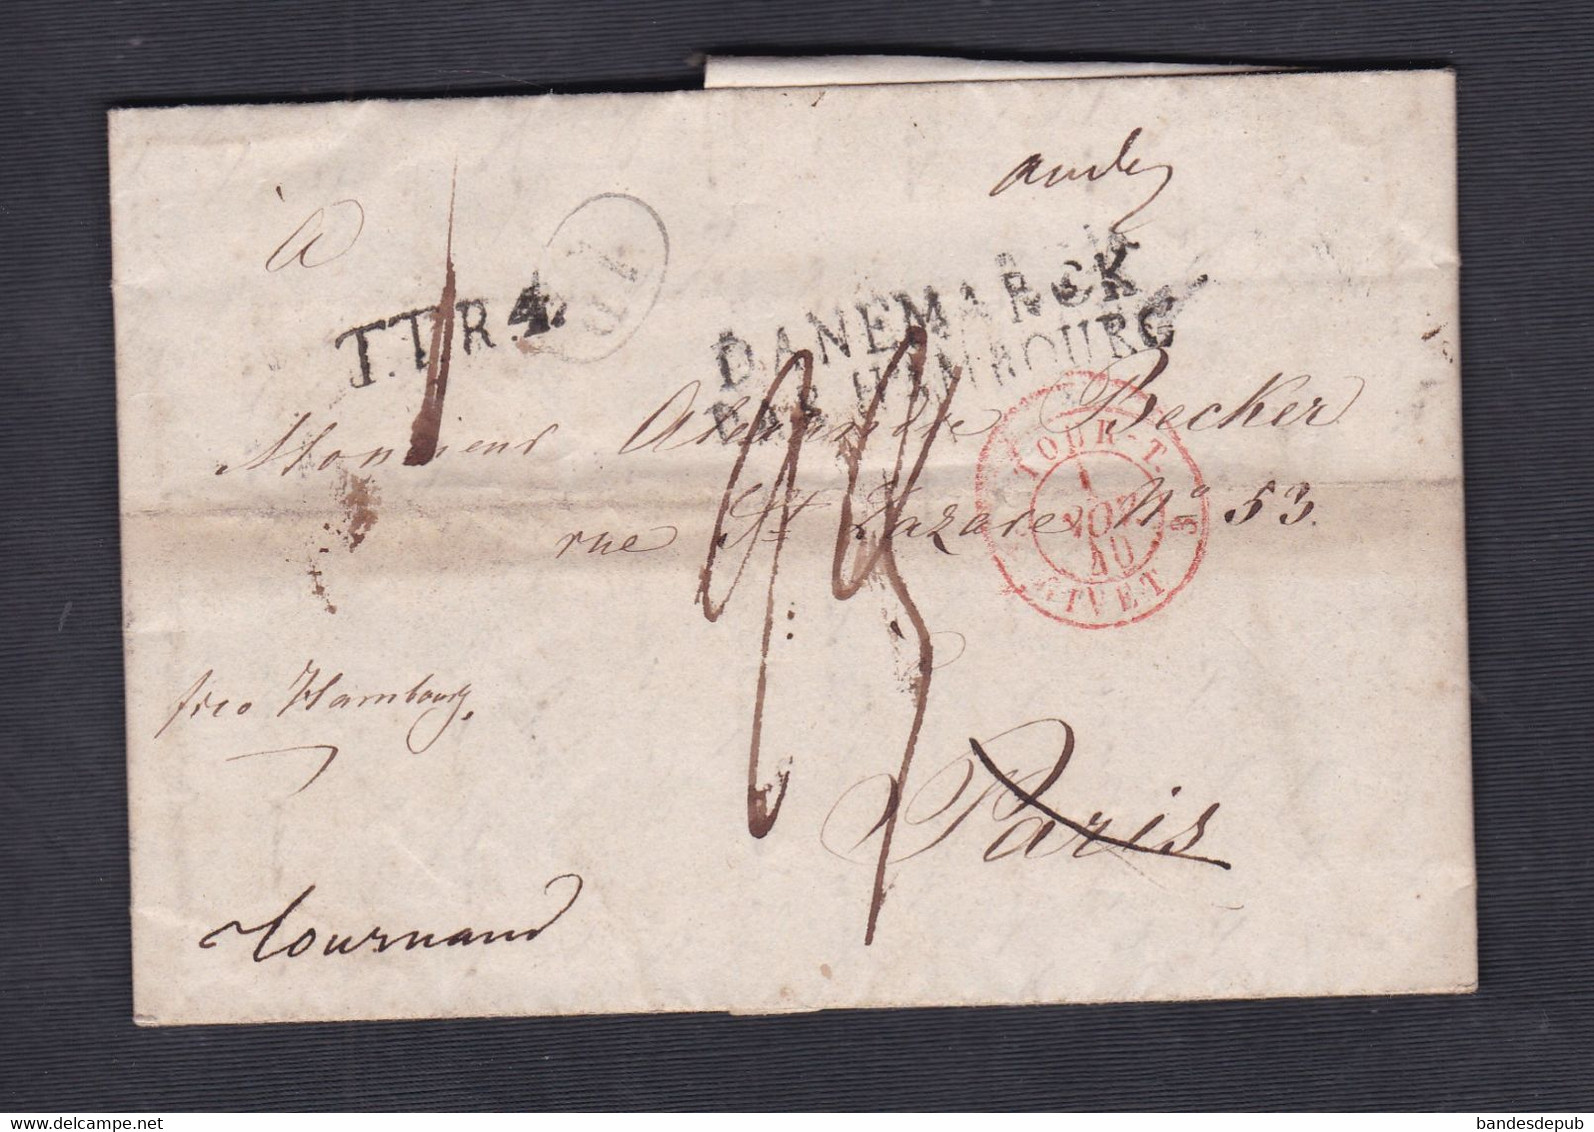 à
T.T.R.4.
DANEMARCK
PAR HAMBOURG
Monsieur Alexandre Becker
rue St Lazare No 53.
TOUR-T.
1
NOV
40
GIVET
3
frco Hambourg.
Paris
Tournand
23
bandesdepub